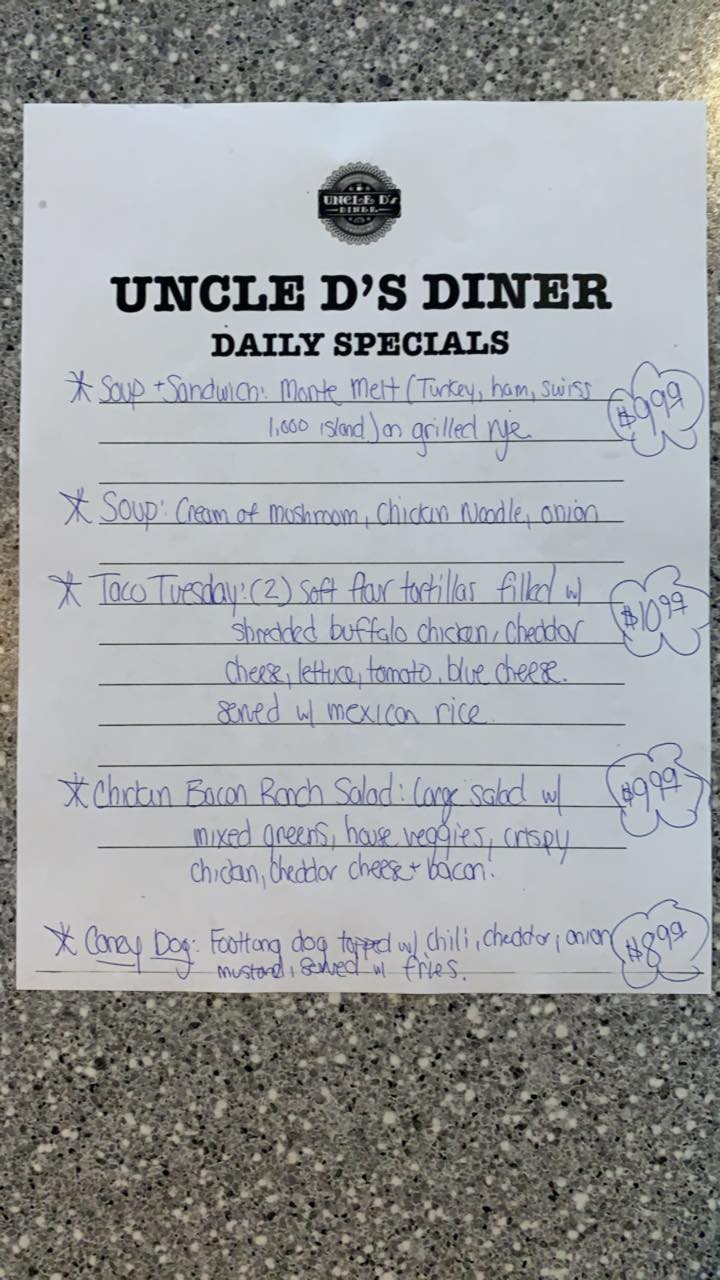 UNCLE D's
DINER
UNCLE D'S DINER
DAILY SPECIALS
* Soup + Sandwich: Monte Melt (Turkey, ham, swiss $9.99
1,000 island) on grilled rye
* Soup: Cream of mushroom, Chicken Noodle, onion
* Taco Tuesday: (2) Soft flour tortillas filled w/ $10.99
shredded buffalo chicken, cheddar
cheese, lettuce, tomato, blue cheese.
served w/ mexican rice
* Chicken Bacon Ranch Salad: Large salad w/ $9.99
mixed greens, house veggies, crispy
chicken, cheddar cheese + bacon.
* Coney Dog: Footlong dog topped w/ chili, cheddar, onion $8.99
mustard, served w/ fries.